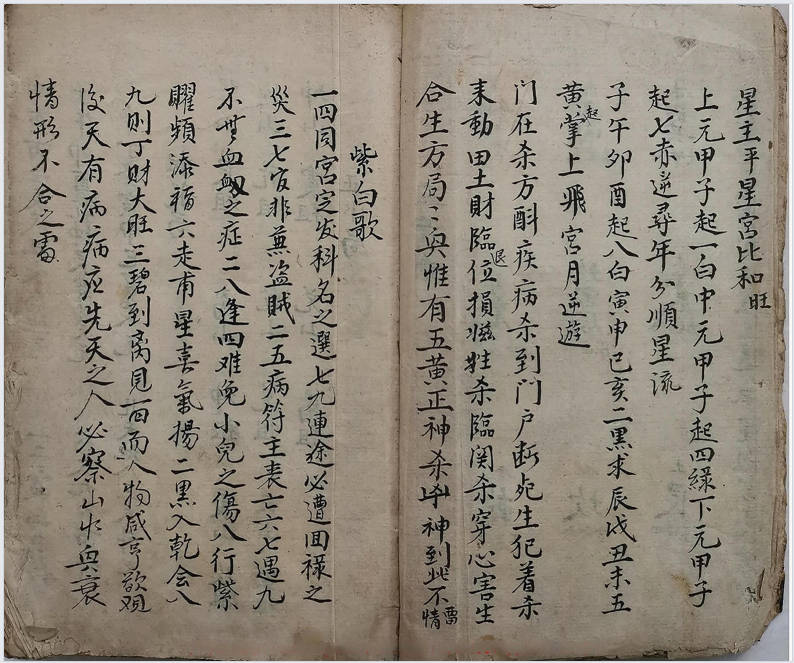 星主平星宮比和旺
上元甲子起一白中元甲子起四綠下元甲子
起七赤逆尋年分順星流
子午卯酉起八白寅申巳亥二黑求辰戌丑未五
黃起掌上飛宮月逆遊
门在杀方酙疾病杀到门户断死生犯着杀
来動田土財臨位退損滋牲杀臨関杀穿心害生
合生方局々與惟有五黄正神杀毕神到此不
曹情
紫白歌
一四同宮定发科名之選七九連途必遭回禄之
災三七官非無盗賊二五病符主丧亡六七遇九
不無血之症二八逢四难免小兒之傷八行紫
曜頻添福六走甫星喜氣揚二黑入乾会八
九則丁財大旺三碧到离見百而人物咸亨欲观
後天有病病应先天之人必察山水興衰
情形不合之雷